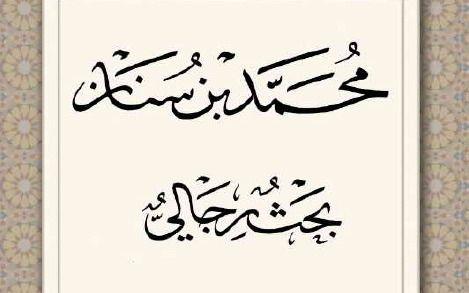 مُحَمَّد بْن سُنَان
بَحْثٌ رِجَاليٌّ